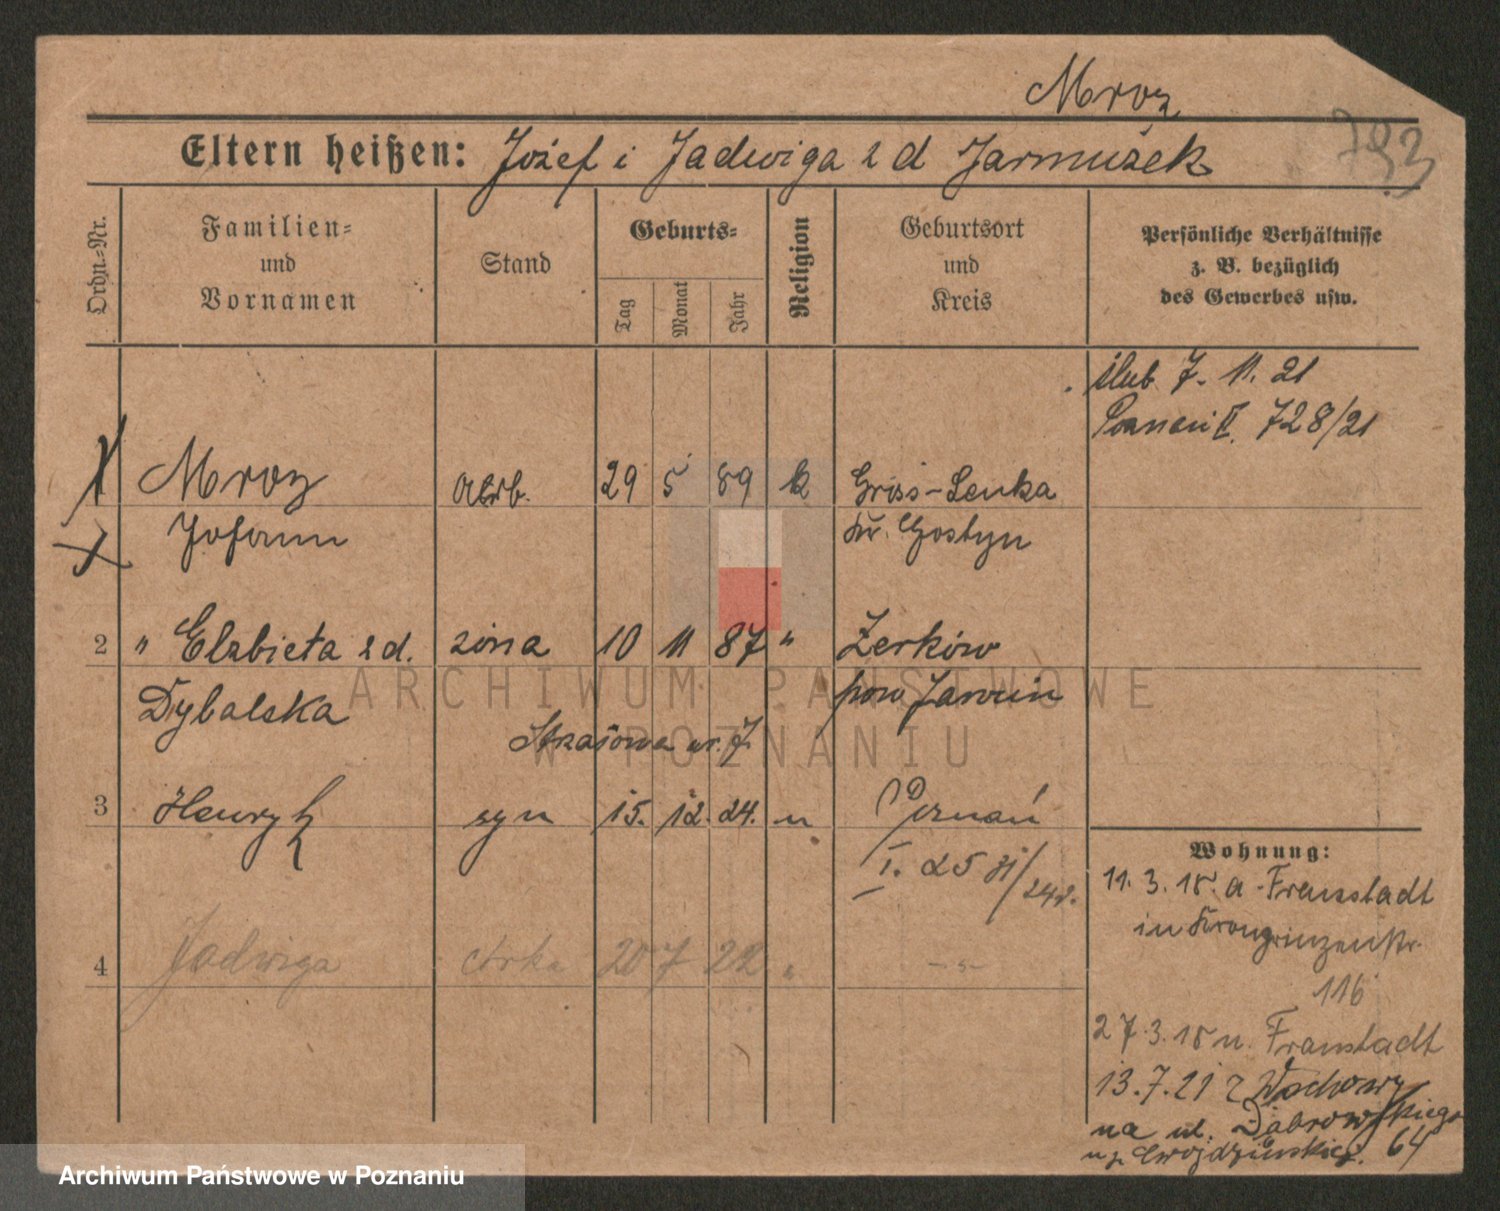 Mroz
793
Eltern heißen: Józef i Jadwiga z d Jarmużek
Ordn.-Nr.
Familien-
und
Vornamen
Stand
Geburts-
Tag
Monat
Jahr
Religion
Geburtsort
und
Kreis
Persönliche Verhältnisse
z. B. bezüglich
des Gewerbes usw.
ślub 7. 11. 21
Poznań II. 728/21
Mroz Arb. 29 5 89 k Griss-Lenka
Johann kr. Gostyn
2 " Elzbieta z d. żona 10 11 87 " Żerków
Dybalska pow Jarocin
nr. 7
3 Henryk syn 15. 12. 24. " Poznań
I. 25
4 Jadwiga córka 20 7 22 " -"-
Wohnung:
11. 3. 18. a Fraustadt
in Kronprinzenstr.
116
27. 3. 18 n. Fraustadt
13. 7. 21 z Wschowy
na ul. Dąbrowskiego
64
ARCHIWUM PAŃSTWOWE
W POZNANIU
Archiwum Państwowe w Poznaniu